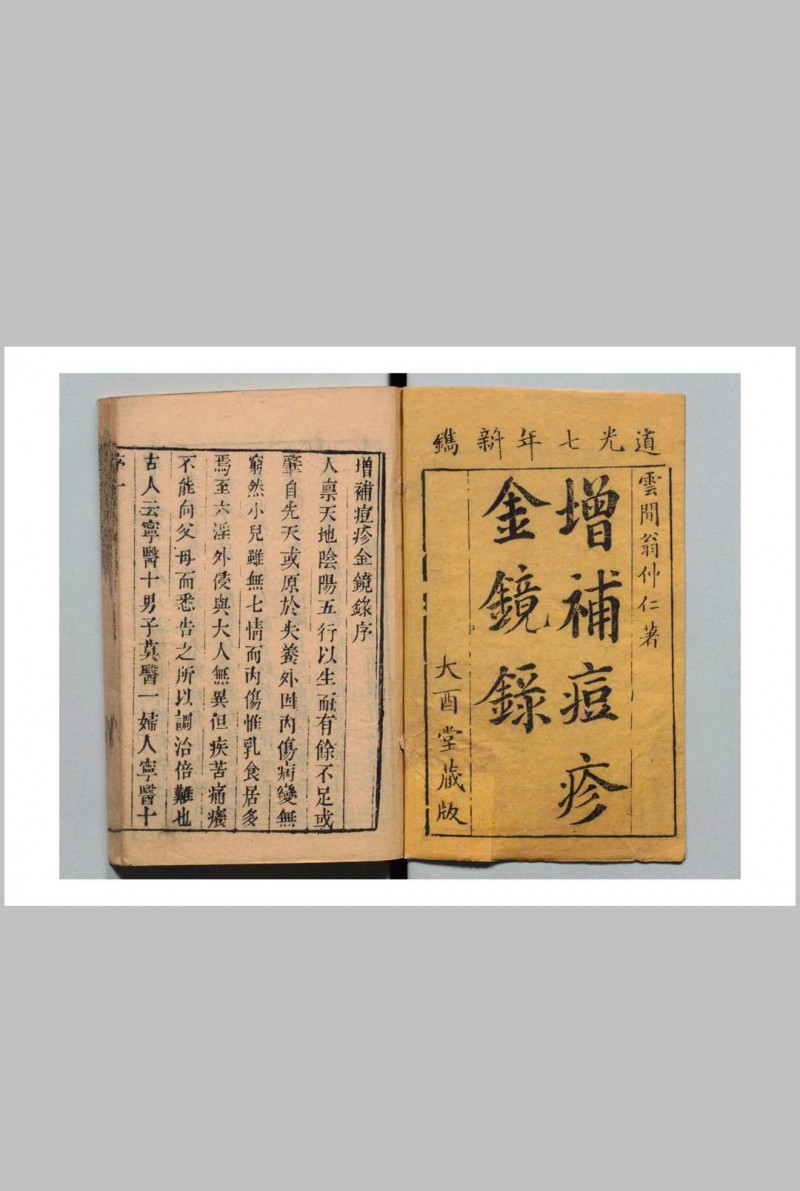 道光七年新鐫
雲間翁仲仁著
增補痘疹
金鏡錄
大酉堂藏版
增補痘疹金鏡錄序
人禀天地陰陽五行以生而有餘不足或
肇自先天或原於失養外因內傷病變無
窮然小兒雖無七情而內傷惟乳食居多
焉至六淫外侵與大人無異但疾苦痛癢
不能向父母而悉告之所以調治倍難也
古人云寧醫十男子莫醫一婦人寧醫十
序一